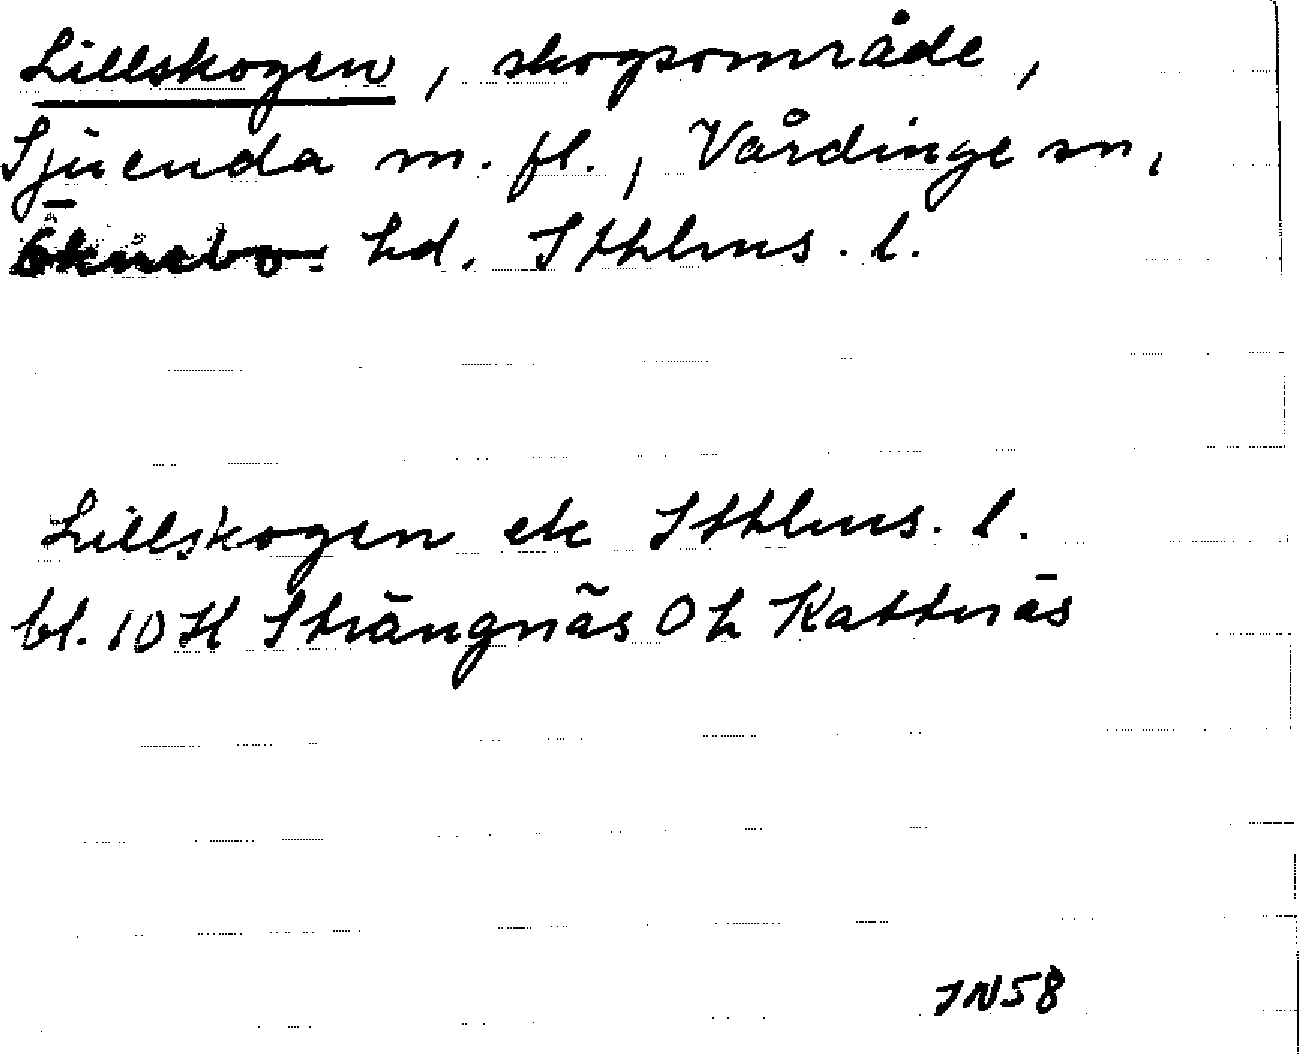 Lillskogen, skogsområde,
Sjuenda m. fl., Vårdinge sn,
Öknebo hd. Sthlms. l.
Lillskogen ek Sthlms. l.
bl. 10H Strängnäs 0h Kattnäs
JN58